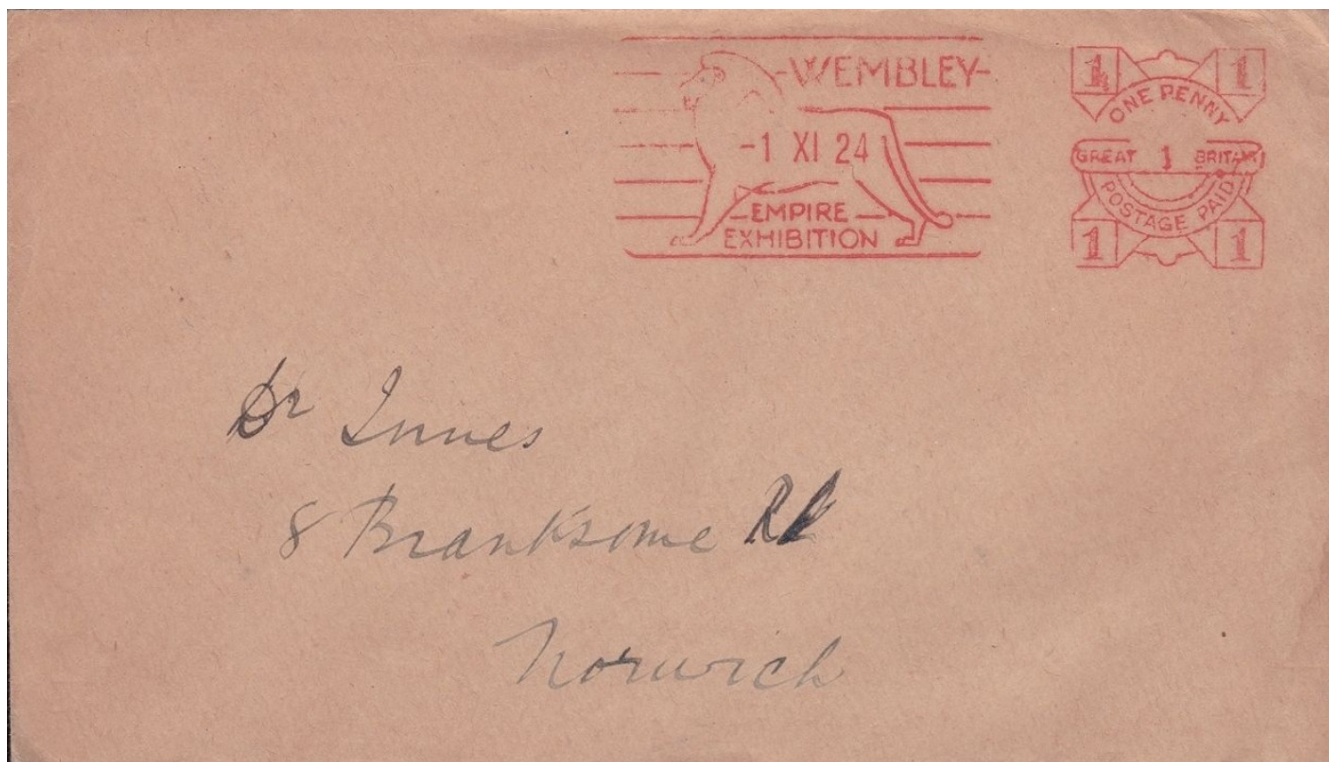 -WEMBLEY-
-1 XI 24
EMPIRE
EXHIBITION
1 1
ONE PENNY
GREAT 1 BRITAIN
POSTAGE PAID
1 1
Dr Innes
8 Branksome Rd
Norwich